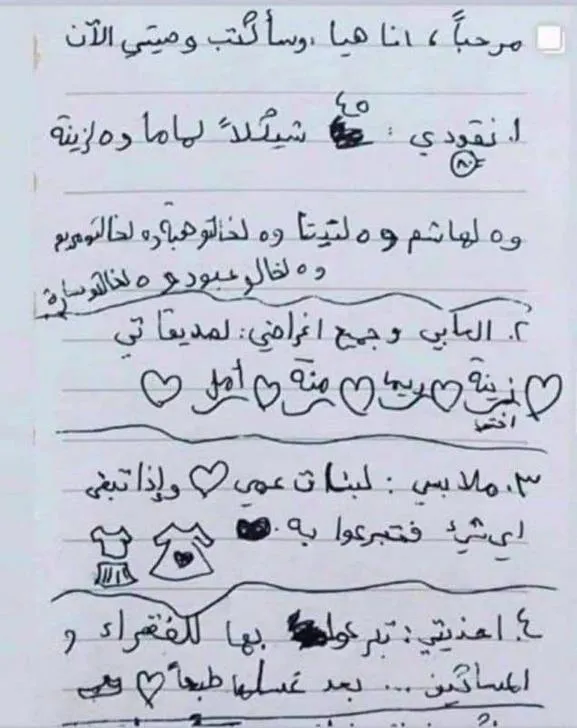 مرحباً، انا هيا، وسأكتب وصيتي الآن
١. نقودي: ٤٥ شيكلاً لماما و٥ لزينة
٨٠=
و٥ لهاشم و٥ لتيتا و٥ لخالتو هبة و٥ لخالتو مريم
و٥ لخالو عبود و٥ لخالتو سارة
٢. العابي وجميع اغراضي: لصديقاتي
زينة ريما منة أمل
اختي
٣. ملابسي: لبنات عمي وإذا تبقى
اي شيء فتبرعوا به.
٤. احذيتي: تبرعوا بها للفقراء و
المساكين... بعد غسلها طبعاً